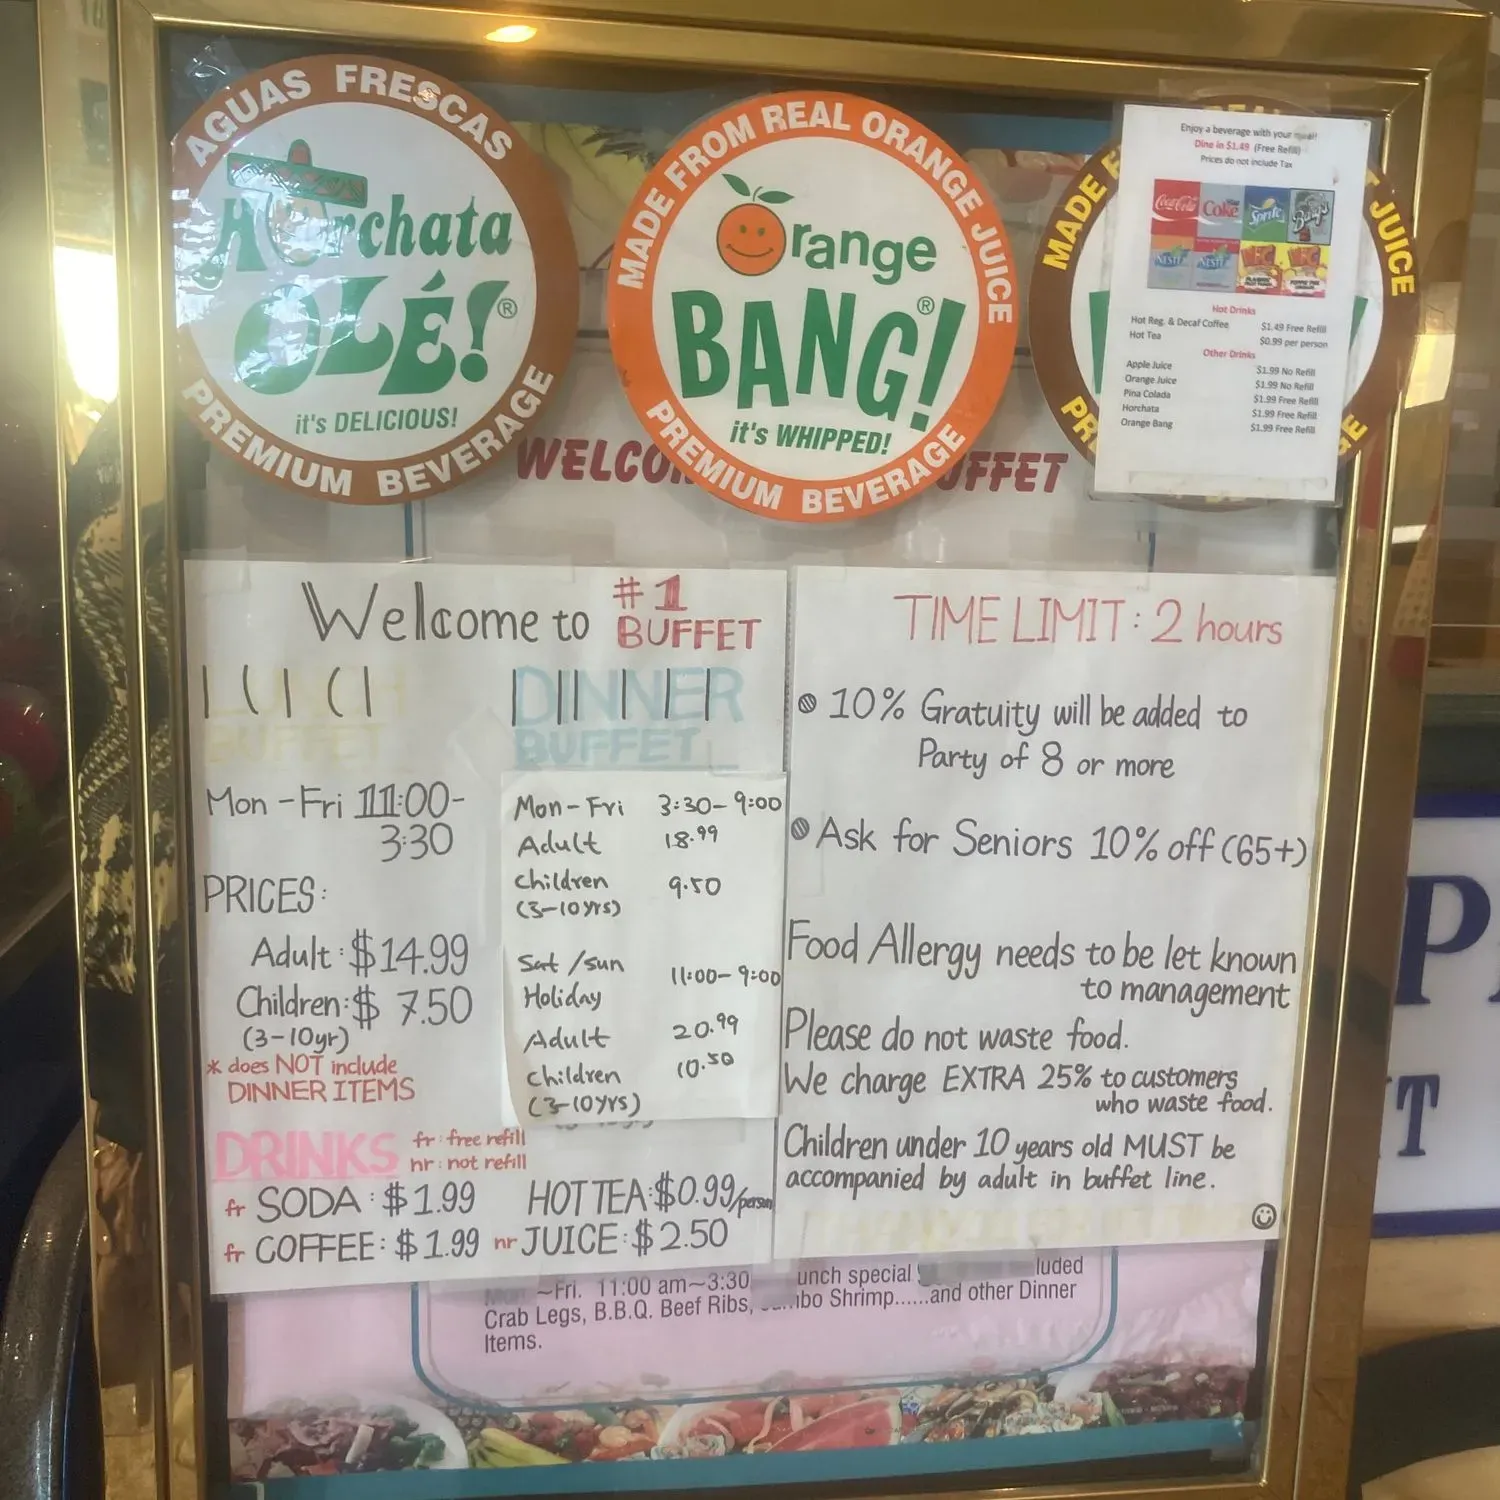 AGUAS FRESCAS
Horchata
OLÉ!®
it's DELICIOUS!
PREMIUM BEVERAGE
MADE FROM REAL ORANGE JUICE
Orange
BANG!®
it's WHIPPED!
PREMIUM BEVERAGE
MADE
JUICE
Enjoy a beverage with your meal!
Dine in $1.49 (Free Refill)
Prices do not include Tax
Coca-Cola Coke Sprite Barq's
Hot Drinks
Hot Reg. & Decaf Coffee $1.49 Free Refill
Hot Tea $0.99 per person
Other Drinks
Apple Juice $1.99 No Refill
Orange Juice $1.99 No Refill
Pina Colada $1.99 Free Refill
Horchata $1.99 Free Refill
Orange Bang $1.99 Free Refill
Welcome to #1
BUFFET
LUNCH
BUFFET
Mon-Fri 11:00-
3:30
PRICES:
Adult: $14.99
Children: $7.50
(3-10yr)
* does NOT include
DINNER ITEMS
DINNER
BUFFET
Mon-Fri 3:30-9:00
Adult 18.99
Children 9.50
(3-10yrs)
Sat/sun 11:00-9:00
Holiday
Adult 20.99
Children 10.50
(3-10yrs)
DRINKS fr: free refill
nr: not refill
fr SODA: $1.99 HOT TEA: $0.99/person
fr COFFEE: $1.99 nr JUICE: $2.50
TIME LIMIT: 2 hours
10% Gratuity will be added to
Party of 8 or more
Ask for Seniors 10% off (65+)
Food Allergy needs to be let known
to management
Please do not waste food.
We charge EXTRA 25% to customers
who waste food.
Children under 10 years old MUST be
accompanied by adult in buffet line.
~Fri. 11:00 am~3:30 unch special luded
Crab Legs, B.B.Q. Beef Ribs, Shrimp......and other Dinner
Items.